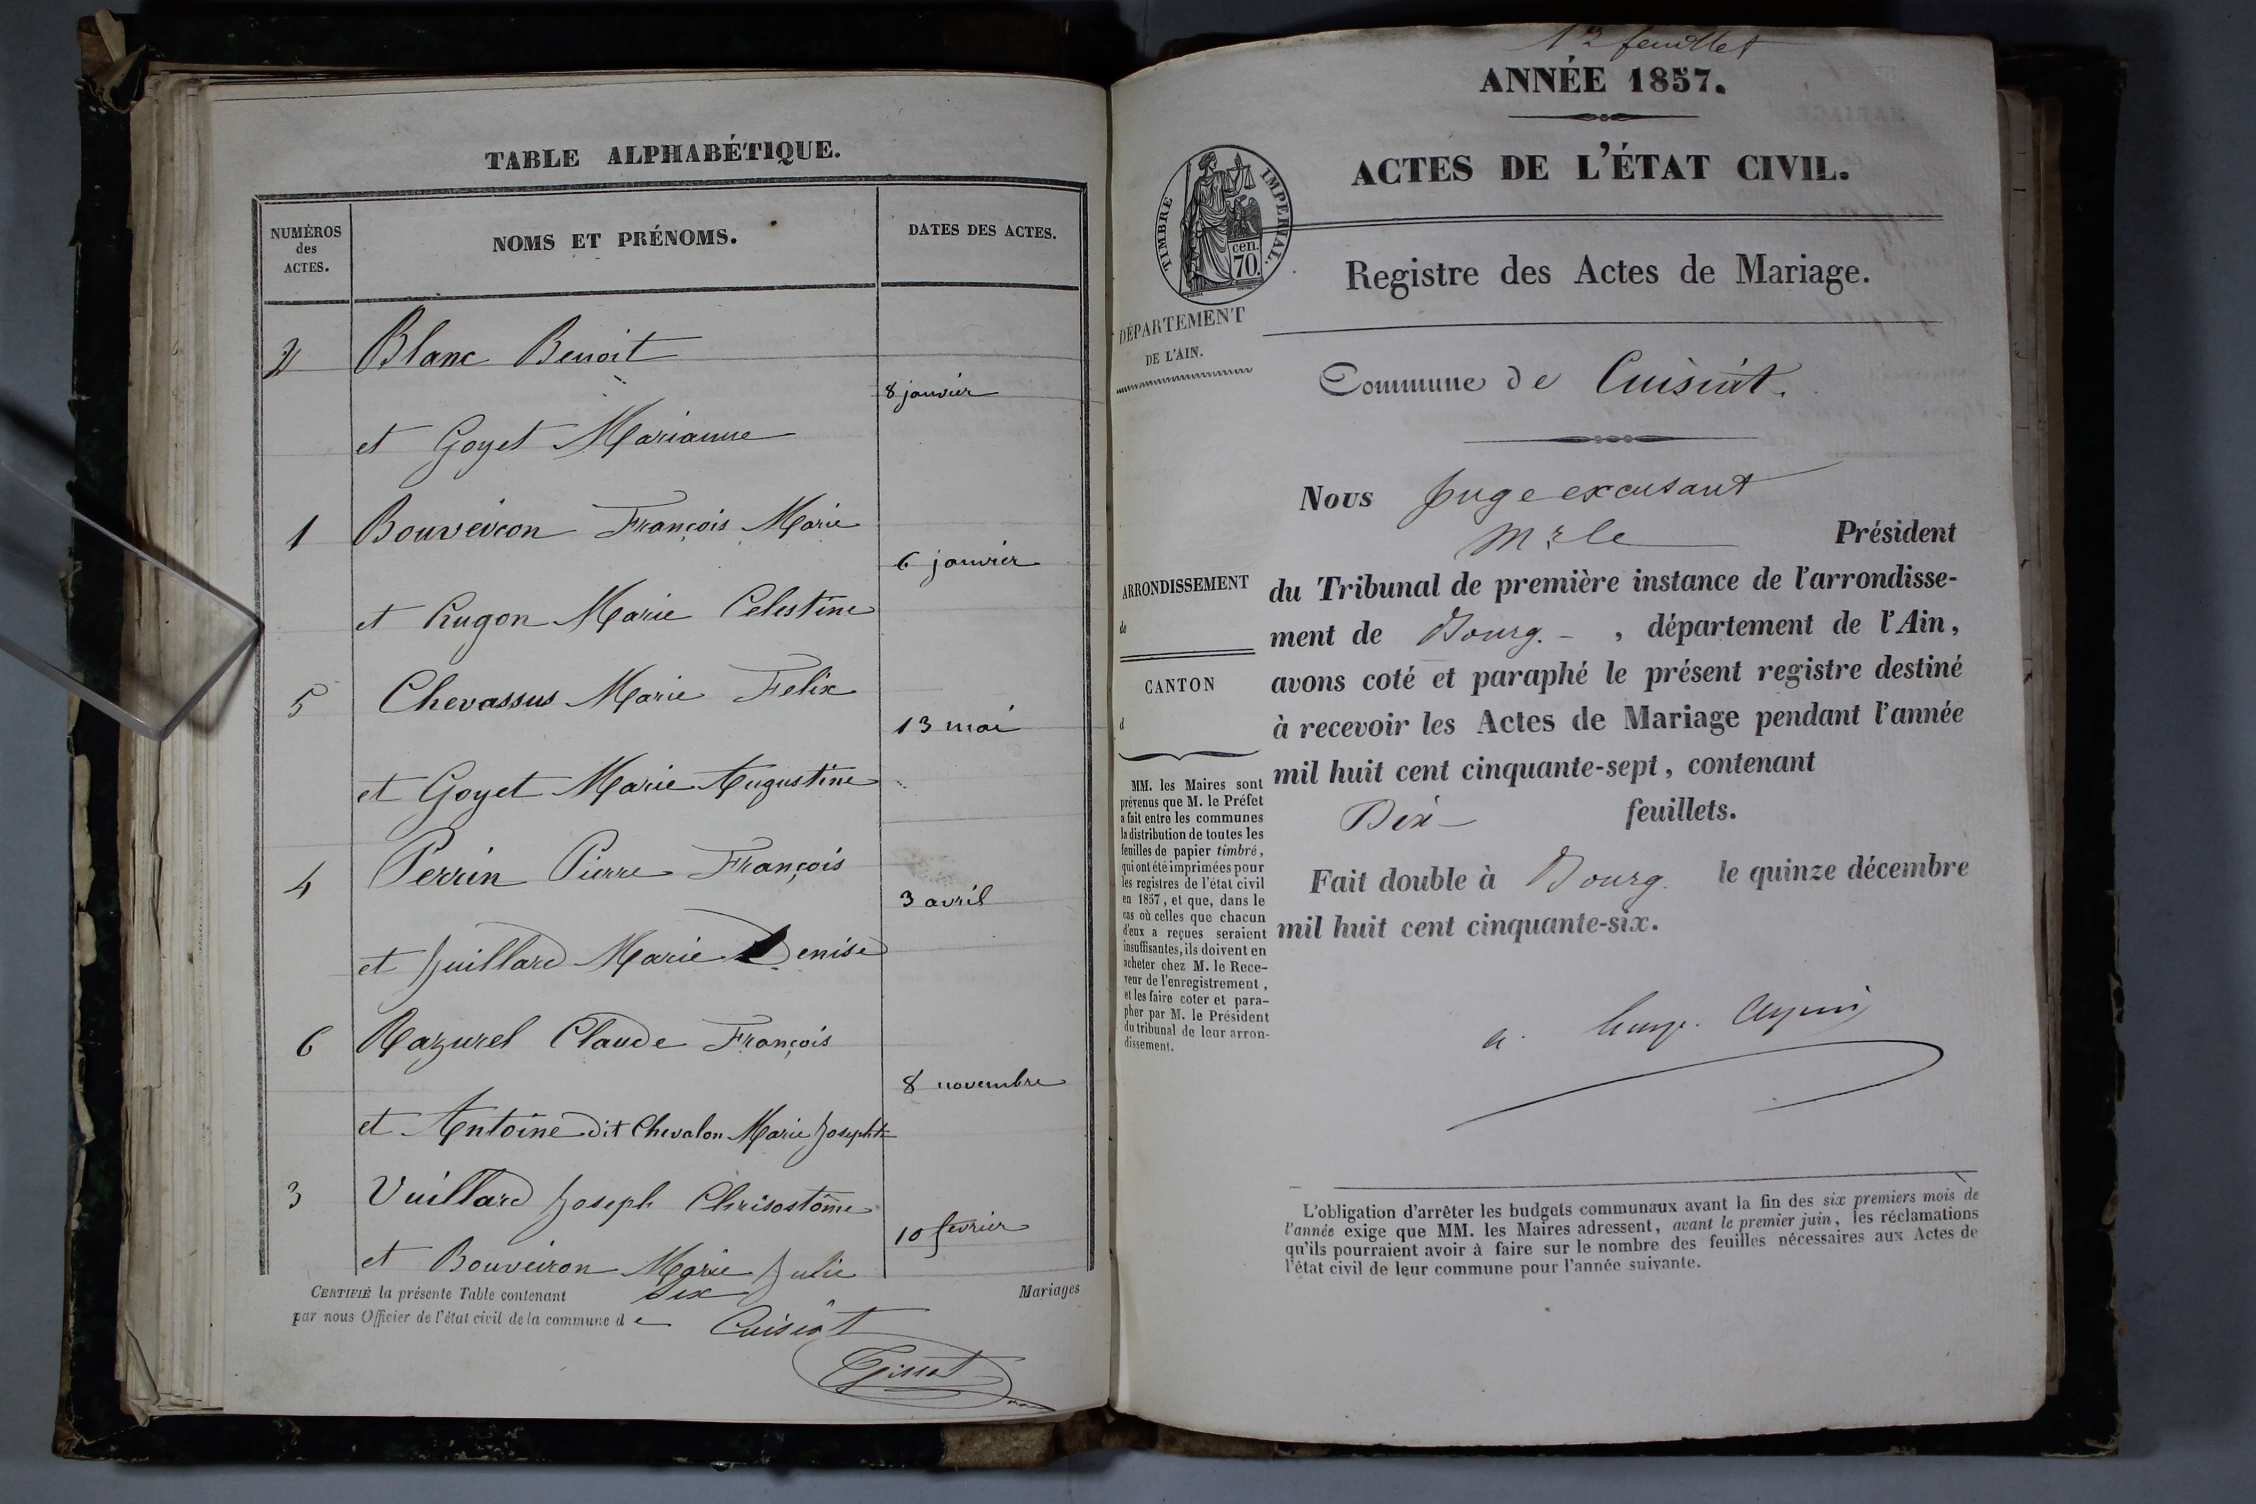 TABLE ALPHABÉTIQUE.
NUMÉROS
des
ACTES.
NOMS ET PRÉNOMS.
DATES DES ACTES.
2 Blanc Benoit
8 janvier
et Goyet Marianne
1 Bouveiron François Marie
6 janvier
et Hugon Marie Celestine
5 Chevassus Marie Felix
13 mai
et Goyet Marie Augustine
4 Perrin Pierre François
3 avril
et Juillard Marie Denise
6 Mazurel Claude François
8 novembre
et Antoine dit Chevalon Marie Josephte
3 Vuillard Joseph Chrisostôme
10 fevrier
et Bouveiron Marie Julie
CERTIFIÉ la présente Table contenant six Mariages
par nous Officier de l'état civil de la commune de Cuisiat
1er feuillet
ANNÉE 1857.
ACTES DE L'ÉTAT CIVIL.
TIMBRE IMPERIAL.
cen.
70.
Registre des Actes de Mariage.
DÉPARTEMENT
DE L'AIN.
Commune de Cuisiat.
Nous juge excusant
Mr le Président
du Tribunal de première instance de l'arrondisse-
ment de Bourg. , département de l'Ain,
avons coté et paraphé le présent registre destiné
à recevoir les Actes de Mariage pendant l'année
mil huit cent cinquante-sept, contenant
Dix feuillets.
Fait double à Bourg. le quinze décembre
mil huit cent cinquante-six.
ARRONDISSEMENT
de
CANTON
d
MM. les Maires sont
prévenus que M. le Préfet
a fait entre les communes
la distribution de toutes les
feuilles de papier timbré,
qui ont été imprimées pour
les registres de l'état civil
en 1857, et que, dans le
cas où celles que chacun
d'eux a reçues seraient
insuffisantes, ils doivent en
acheter chez M. le Rece-
veur de l'enregistrement,
et les faire coter et para-
pher par M. le Président
du tribunal de leur arron-
dissement.
L'obligation d'arrêter les budgets communaux avant la fin des six premiers mois de
l'année exige que MM. les Maires adressent, avant le premier juin, les réclamations
qu'ils pourraient avoir à faire sur le nombre des feuilles nécessaires aux Actes de
l'état civil de leur commune pour l'année suivante.